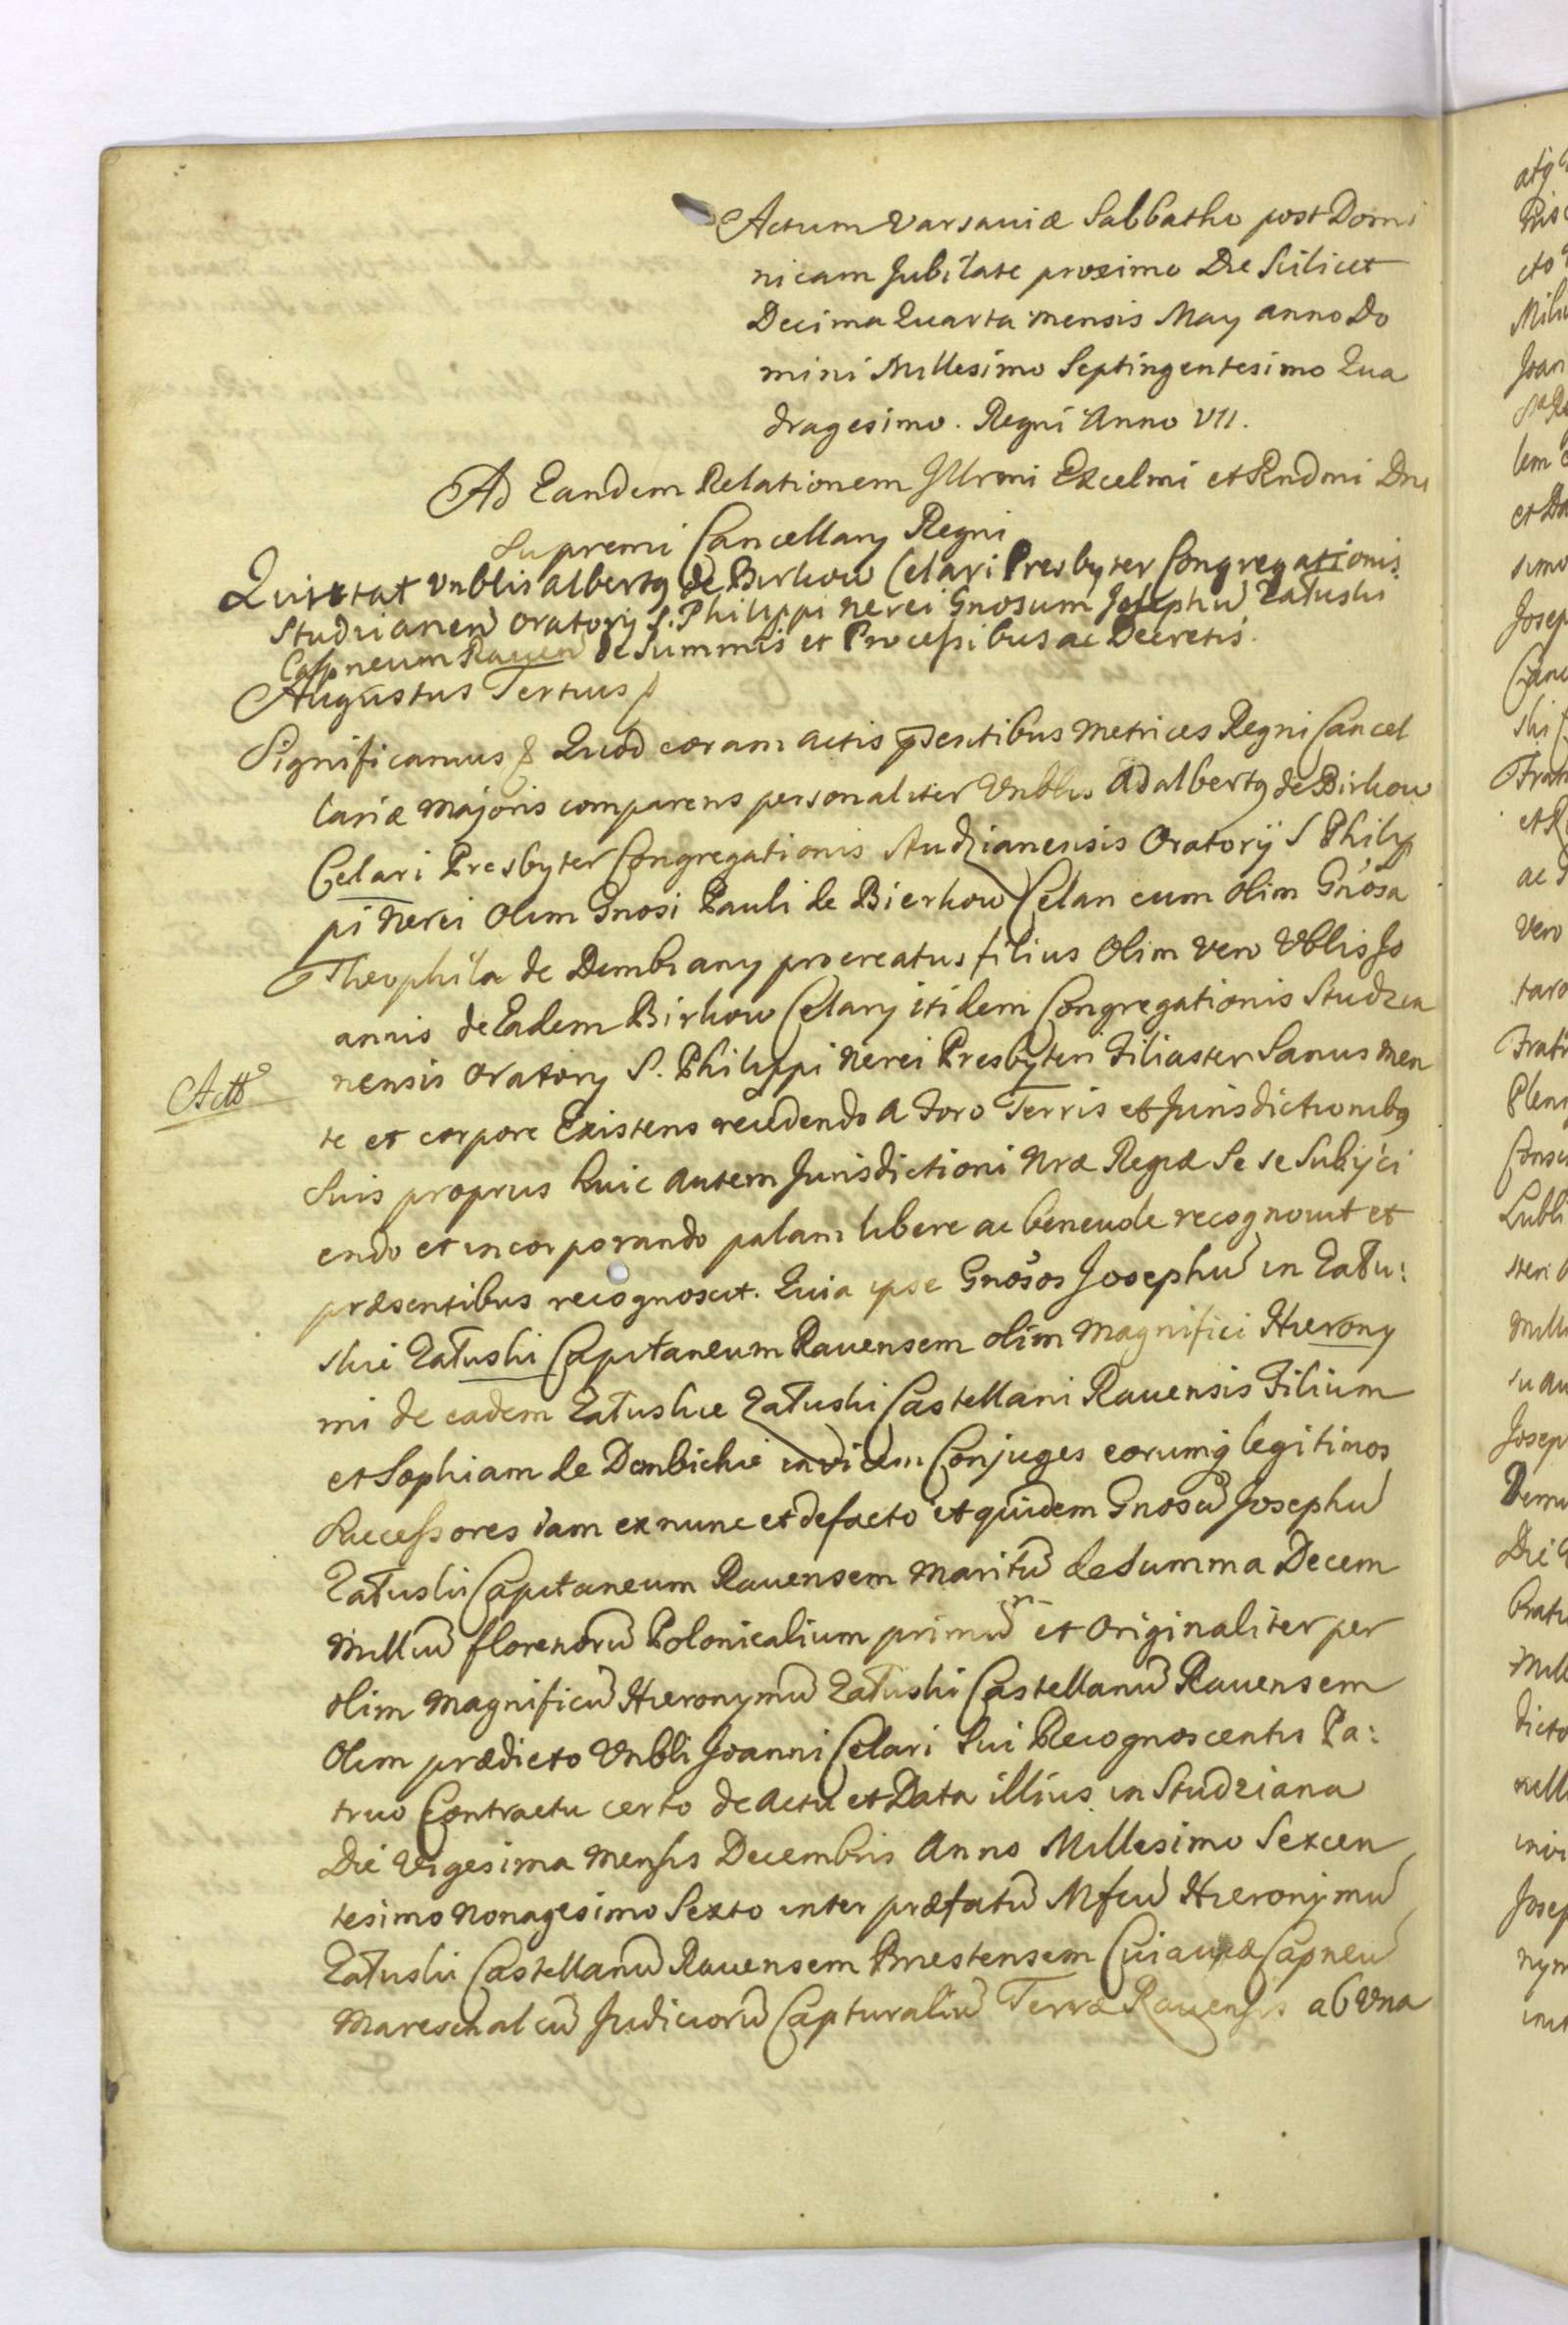 Actum Varsaviæ Sabbatho post Domi
nicam Jubilate proximo Die Scilicet
Decima Quarta mensis May anno Do
mini Millesimo Septingentesimo Qua
dragesimo. Regni Anno VII.
Ad Eandem Relationem Illrmi Excelmi et Rndmi Dni
Supremi Cancellary Regni
Quittat Vnblis albertq de Birkow Celari Presbyter Congregationis
Studzianen Oratory S. Philippi Nerei Gnosum Josephu Załuski
Capneum Rauen de Summis et Processibus ac Decretis.
Augustus Tertius
Significamus & Quod coram actis psentibus Metrices Regni Cancel
lariæ Majoris comparens personaliter Vnblis Adalbertq de Birkow
Celari Presbyter Congregationis Studzianensis Oratorij S Philip
pi Nerei Olim Gnosi Pauli de Bierkow Celari cum olim Gnosa
Theophila de Dembiany procreatus filius Olim vero Vblis Jo
annis de Eadem Birkow Celary itidem Congregationis Studzia
nensis Oratory S. Philippi Nerei Presbyteri Filiaster Sanus men
te et corpore Existens recedendo a Foro Terris et Jurisdictionibq
Suis proprus huic autem Jurisdictioni Nræ Regiæ Se se Subijci
endo et incorporando palam libere ac beneuole recognouit et
præsentibus recognoscit. Quia ipse Gnosos Josephu in Zału:
skie Załuski Capitaneum Rauensem olim Magnifici Hierony
mi de eadem Załuskie Załuski Castellani Rauensis Filium
et Sophiam de Dembickie invicem Conjuges eorumq legitimos
Successores iam ex nunc et defacto et quidem Gnosu Josephu
Załuski Capitaneum Rauensem Maritu de Summa Decem
Milliu florenoru Polonicalium primu et Originaliter per
olim Magnificu Hieronymu Załuski Castellanu Rauensem
Olim prædicto Vnbli Joanni Celari Sui Recognoscentis Pa:
truo Contractu certo de actu et Data illius in Studziana
Die Vigesima Mensis Decembris Anno Millesimo Sexcen
tesimo Nonagesimo Sexto inter præfatu Mfcu Hieronymu
Załuski Castellanu Rauensem Brestensem Cuiauiæ Capneu
Mareschalcu Judicioru Capturaliu Terræ Rauensis ab Vna